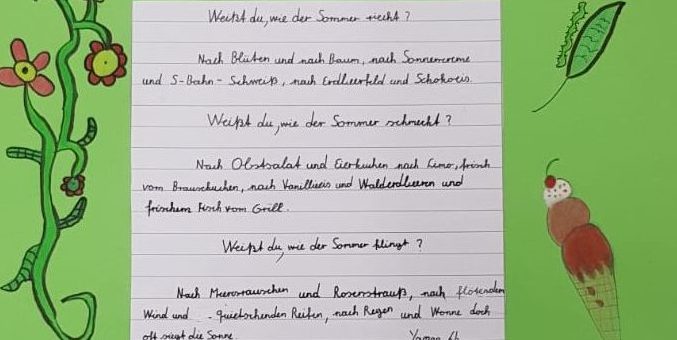 Weißt du, wie der Sommer riecht?
Nach Blüten und nach Baum, nach Sonnencreme
und S-Bahn-Schweiß, nach Erdbeerfeld und Schokoeis.
Weißt du, wie der Sommer schmeckt?
Nach Obstsalat und Eierkuchen nach Limo, frisch
vom Brausekuchen, nach Vanilleeis und Walderdbeeren und
frischem Fisch vom Grill.
Weißt du, wie der Sommer klingt?
Nach Meeresrauschen und Rosenstrauß, nach flötenden
Wind und - quietschenden Reifen, nach Regen und Wonne doch
oft siegt die Sonne.
Yaman